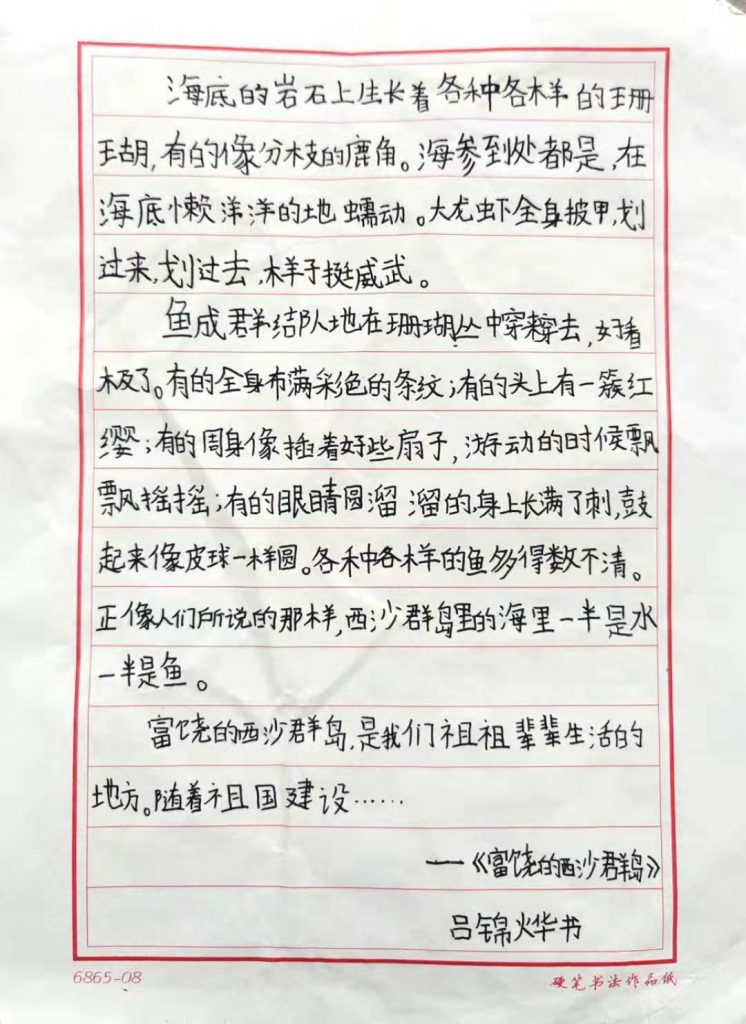 海底的岩石上生长着各种各样的珊
瑚,有的像分枝的鹿角。海参到处都是,在
海底懒洋洋的地蠕动。大龙虾全身披甲,划
过来,划过去,样子挺威武。
鱼成群结队地在珊瑚丛中穿来穿去,好看
极了。有的全身布满彩色的条纹;有的头上有一簇红
缨;有的周身像插着好些扇子,游动的时候飘
飘摇摇;有的眼睛圆溜溜的,身上长满了刺,鼓
起来像皮球一样圆。各种各样的鱼多得数不清。
正像人们所说的那样,西沙群岛里的海里一半是水
一半是鱼。
富饶的西沙群岛,是我们祖祖辈辈生活的
地方。随着祖国建设……
——《富饶的西沙群岛》
吕锦烨书
6865-08 硬笔书法作品纸